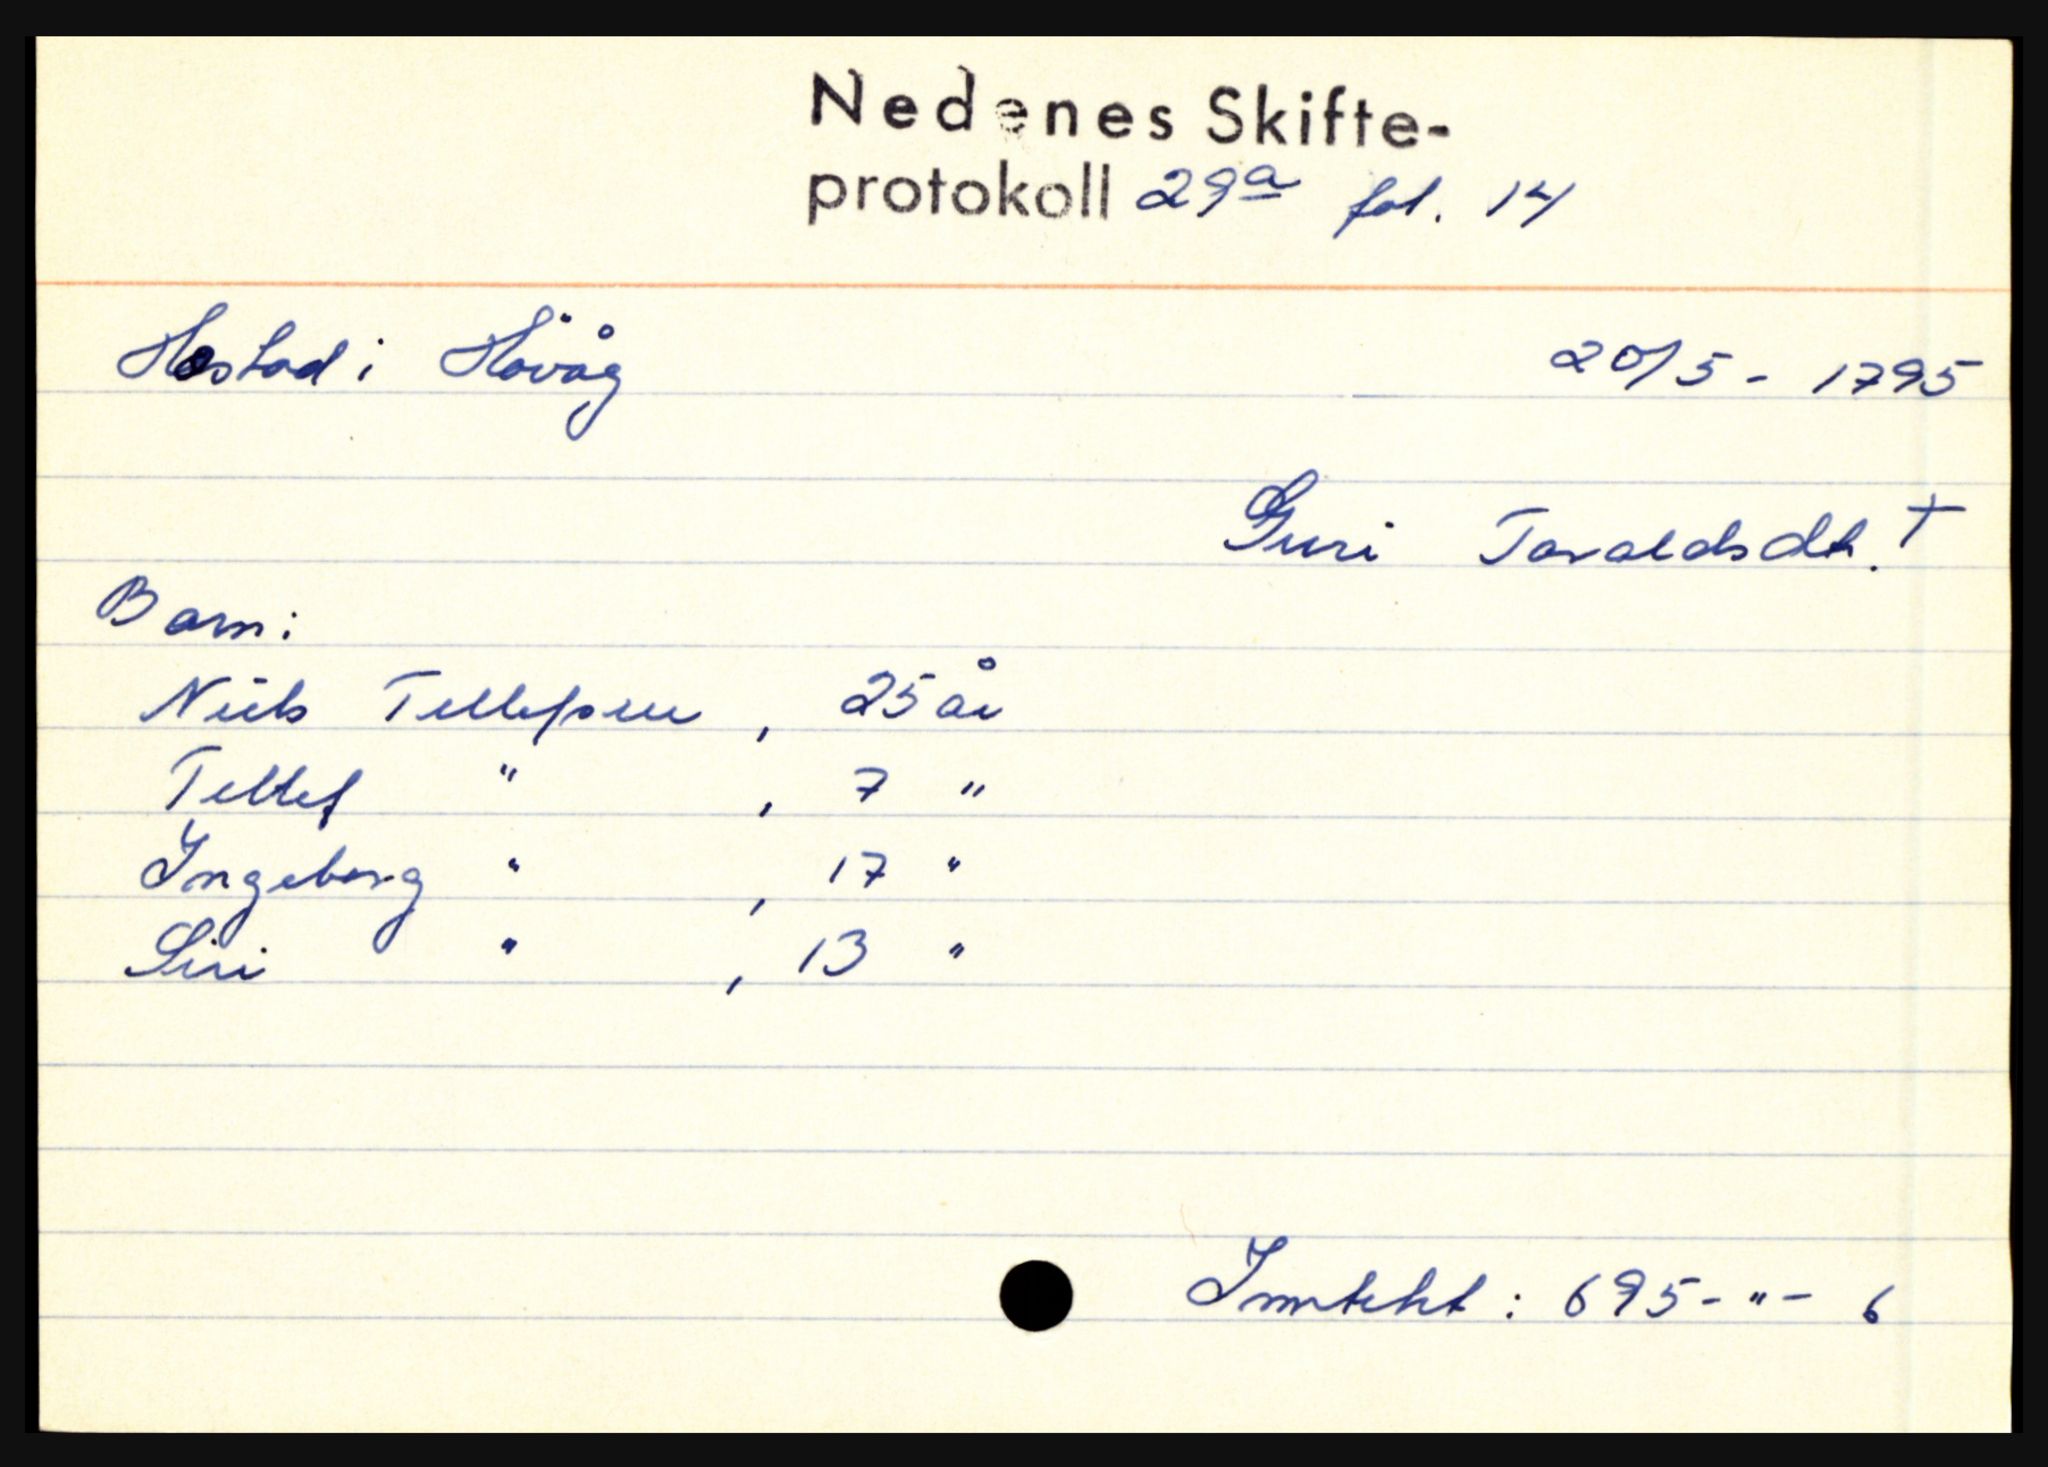 Nedenes Skifte-
protokoll 29a fol. 14
Hæstad i Hövåg 20/5 - 1795
Guri Tovaldsdt. †
Barn:
Niels Tellefsen , 25 år
Tellef " , 7 "
Ingeborg " , 17 "
Siri " , 13 "
Inntekt : 695 - " - 6